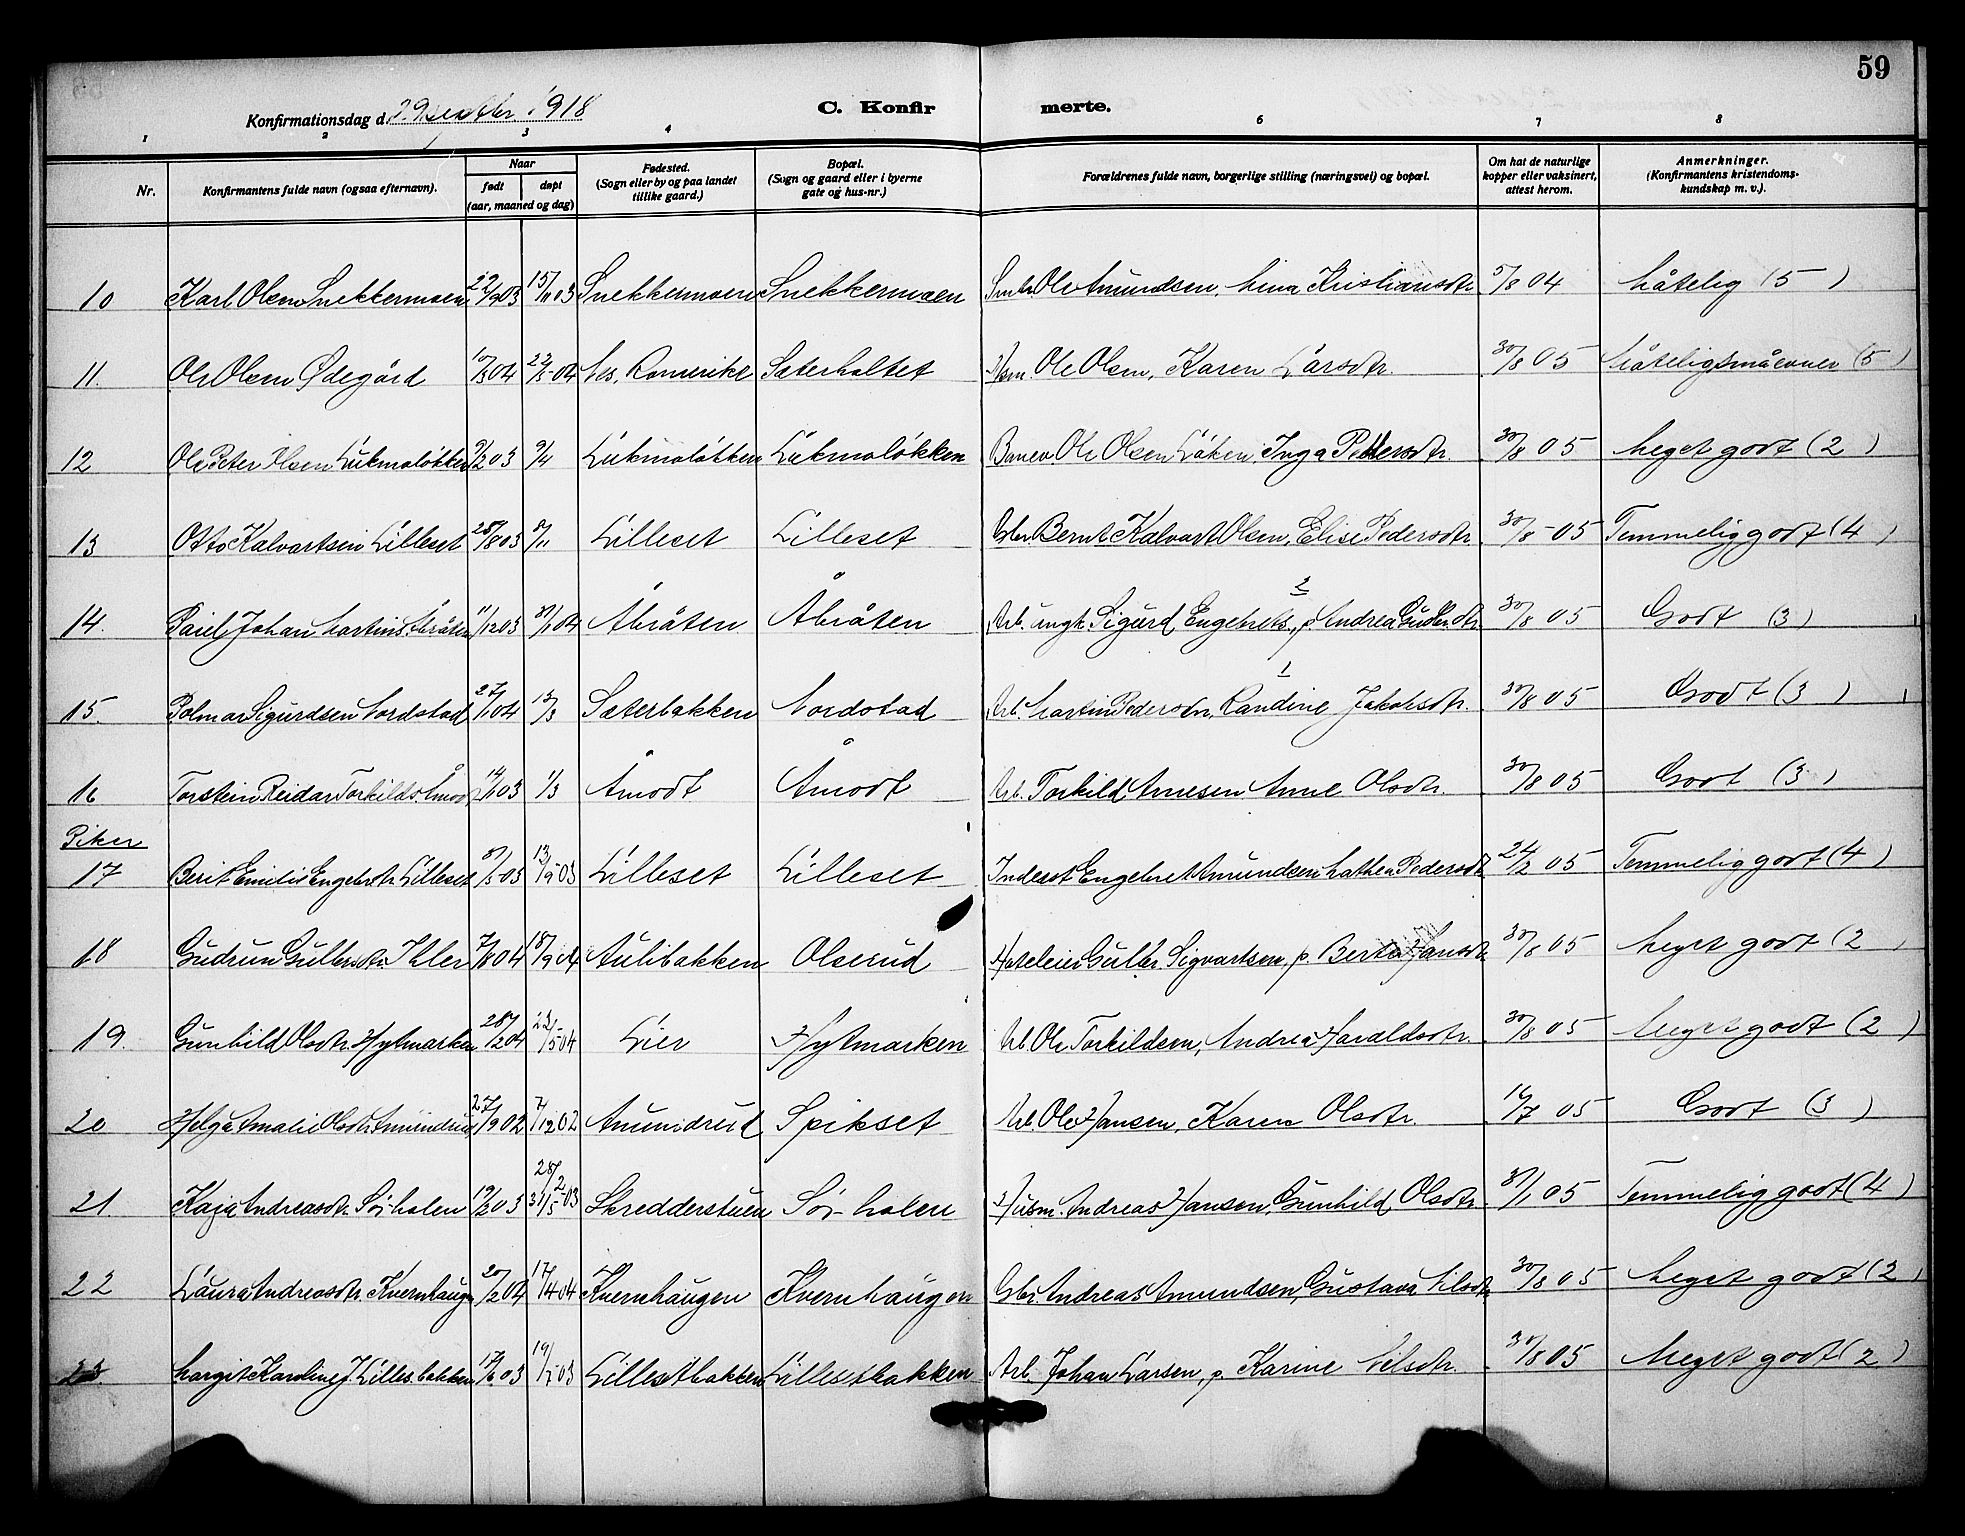 59
Konfirmationsdag d. 29 septbr. 1918
C. Konfirmerte.
1 2 3 4 5 6 7 8
Nr.
Konfirmantens fulde navn (ogsaa efternavn).
Naar
født døpt
(aar, maaned og dag)
Fødested.
(Sogn eller by og paa landet
tillike gaard.)
Bopæl.
(Sogn og gaard eller i byerne
gate og hus-nr.)
Forældrenes fulde navn, borgerlige stilling (næringsvei) og bopæl.
Om hat de naturlige
kopper eller vaksinert,
attest herom.
Anmerkninger.
(Konfirmantens kristendoms-
kundskap m. v.).
10 Karl Olsen Snekkermoen 22/9 03 15/11 03 Snekkermoen Snekkermoen Ole Amundsen, Lina Kristiansdtr. 5/8 04 Måtelig (5)
11. Ole Olsen Ødegård 10/3 04 22/5 04 Nes, Romerike Sæterholtet Ole Olsen, Karen Larsdtr. 30/8 05 Måtelig små evner (5)
12 Ole Peter Olsen Lukmoløkken 9/2 03 9/4 Lukmoløkken Lukmoløkken Banev. Ole Olsen Løken, Inga Pedersdtr. 30/8 05 Meget godt (2)
13 Otto Kalvartsen Lilleset 28/8 03 8/11 Lilleset Lilleset Gbr. Bernt Kalvart Olsen, Elise Pedersdtr. 30/8 05 Temmelig godt (4)
14. Johan Martins. Åbråten 11/12 03 Åbråten Åbråten Arb. ungk. Sigurd Engebrets., p. Andrea Gulbr.dtr. 2 30/8 05 Godt (3)
15. Polmar Sigurdsen Nordstad 27/1 04 13/3 Sæterbakken Nordstad Arb. Martin Pedersen, Randine Jakobsdtr. 1 30/8 05 Godt (3)
16 Torstein Reidar Torkilds. Åmodt 14/1 03 1/3 Åmodt Åmodt Arb. Torkild Arnesen, Anne Olsdtr. 30/8 05 Godt (3)
Piker
17 Berit Emilie Engebr.dtr. Lilleset 8/5 03 13/9 03 Lilleset Lilleset Inderst Engebret Amundsen, Mathea Pedersdtr. 24/2 05 Temmelig godt (4)
18 Gudrun Gulbr.dtr. Ihler 7/8 04 18/9 04 Aulibakken Olserud Gulbr. Sigvartsen, p. Berta Hansdtr. 30/8 05 Meget godt (2)
19. Gunhild Olsdtr. Hytmarken 28/2 04 23/5 04 Lier Hytmarken Arb. Ole Torkildsen, Andrea Haraldsdtr. 30/8 05 Meget godt (2)
20 Helga Amalie Olsdtr. Amundrud 27/9 02 7/12 02 Amundrud Spikset Arb. Ole Hansen, Karen Olsdtr. 16/7 05 Godt (3)
21. Kaja Andreasdtr. Sørholen 19/2 03 28/2 31/5 03 Skredderstuen Sørholen Husm. Andreas Hansen, Gunhild Olsdtr. 31/1 05 Temmelig godt (4)
22 Laura Andreasdtr. Kvernhaugen 20/2 04 17/4 04 Kvernhaugen Kvernhaugen Gbr. Andreas Amundsen, Gustava Nilsdtr. 30/8 05 Meget godt (2)
23. Margit Karoline J. Lillesetbakken 17/6 03 Lillesetbakken Lillesetbakken Arb. Johan Larsen, p. Karine Nilsdtr. 30/8 05 Meget godt (2)